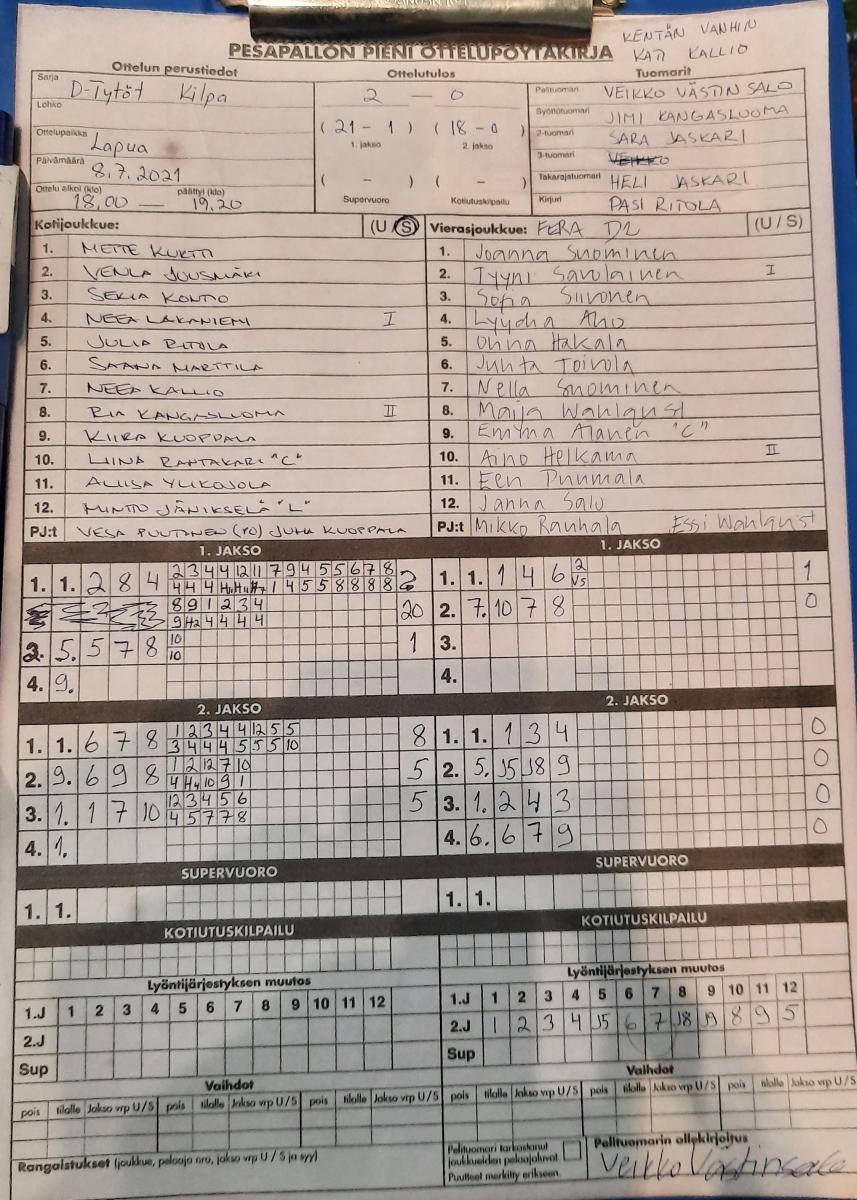 KENTÄN VANHIN
KATI KALLIO
PESÄPALLON PIENI OTTELUPÖYTÄKIRJA
Ottelun perustiedot Ottelutulos Tuomarit
Sarja D-Tytöt Kilpa 2 – 0 Pelituomari VEIKKO VÄSTINSALO
Lohko Syöttötuomari JIMI KANGASLUOMA
Ottelupaikka Lapua (21 - 1) (18 - 0) 2-tuomari SARA JASKARI
1. jakso 2. jakso 3-tuomari
Päivämäärä 8.7.2021 ( - ) ( - ) Takarajatuomari HELI JASKARI
Ottelu alkoi (klo) päättyi (klo) Supervuoro Kotiutuskilpailu Kirjuri PASI RITOLA
18.00 — 19.20
Kotijoukkue: (U / S) Vierasjoukkue: FERA D2 (U / S)
1. METTE KURTTI 1. Joanna Suominen
2. VENLA JUUSMÄKI 2. Tyyni Savolainen I
3. SELIA KONTIO 3. Sofia Siivonen
4. NEEA LAKANIEMI I 4. Lyydia Aho
5. JULIA RITOLA 5. Onna Hakala
6. SAANA MARTTILA 6. Juhta Toivola
7. NEEA KALLIO 7. Nella Suominen
8. RIA KANGASLUOMA II 8. Maija Wahlqust
9. KIIRA KUOPPALA 9. Emma Alanen "C"
10. LIINA RANTAKARI "C" 10. Aino Helkama II
11. ALIISA YLIKOJOLA 11. Een Punmala
12. MINTU JÄNIKSELÄ "L" 12. Janna Salo
PJ:t VESA PUUTINEN (ro) JUHA KUOPPALA PJ:t Mikko Rauhala Essi Wahlqust
1. JAKSO 1. JAKSO
1. 1. 2 8 4 2 3 4 4 12 11 7 9 4 5 5 6 7 8 1. 1. 1 4 6 2 1
4 4 4 1 4 5 5 8 8 8 8 Vs
8 9 1 2 3 4 20 2. 7. 10 7 8 0
9 H2 4 4 4 4
3. 5. 5 7 8 10 1 3.
10
4. 9. 4.
2. JAKSO 2. JAKSO
1. 1. 6 7 8 1 2 3 4 4 12 5 5 8 1. 1. 1 3 4 0
3 4 4 4 5 5 5 10
2. 9. 6 9 8 1 2 12 7 10 5 2. 5. J5 J8 9 0
4 H4 10 9 1
3. 1. 1 7 10 12 3 4 5 6 5 3. 1. 2 4 3 0
4 5 7 7 8
4. 1. 4. 6. 6 7 9 0
SUPERVUORO SUPERVUORO
1. 1. 1. 1.
KOTIUTUSKILPAILU KOTIUTUSKILPAILU
Lyöntijärjestyksen muutos Lyöntijärjestyksen muutos
1.J 1 2 3 4 5 6 7 8 9 10 11 12 1.J 1 2 3 4 5 6 7 8 9 10 11 12
2.J 2.J 1 2 3 4 J5 6 7 J8 J9 8 9 5
Sup Sup
Vaihdot Vaihdot
pois tilalle Jakso vrp U / S pois tilalle Jakso vrp U / S pois tilalle Jakso vrp U / S pois tilalle Jakso vrp U / S pois tilalle Jakso vrp U / S pois tilalle Jakso vrp U / S
Rangaistukset (joukkue, pelaaja nro, jakso vrp U / S ja syy) Pelituomari tarkastanut Pelituomarin allekirjoitus
joukkueiden pelaajaluvat.
Puutteet merkitty erikseen. Veikko Västinsalo